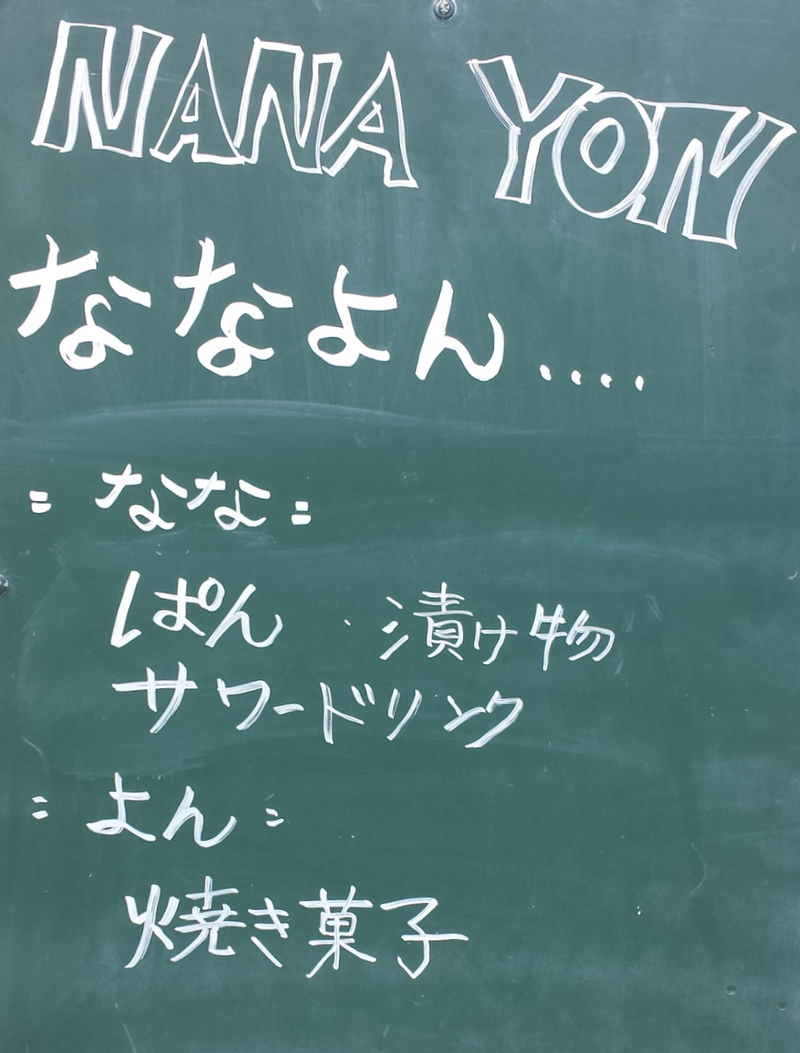 NANA YON
ななよん....
= なな =
ぱん ・ 漬け物
サワードリンク
= よん =
焼き菓子